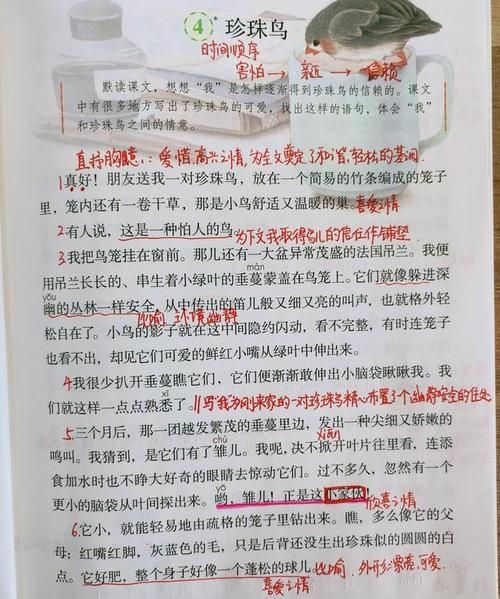 4 珍珠鸟
时间顺序
害怕 → 亲近 → 信赖
默读课文，想想“我”是怎样逐渐得到珍珠鸟的信赖的。课文
中有很多地方写出了珍珠鸟的可爱，找出这样的语句，体会“我”
和珍珠鸟之间的情意。
直抒胸臆：爱惜、高兴之情，为全文奠定了和谐、轻松的基调
1真好！朋友送我一对珍珠鸟，放在一个简易的竹条编成的笼子
里，笼内还有一卷干草，那是小鸟舒适又温暖的巢。喜爱之情
2有人说，这是一种怕人的鸟。为下文我取得鸟儿的信任作铺垫
3我把鸟笼挂在窗前。那儿还有一大盆异常茂盛的法国吊兰。我便
màn
用吊兰长长的、串生着小绿叶的垂蔓蒙盖在鸟笼上。它们就像躲进深
yōu
幽的丛林一样安全，从中传出的笛儿般又细又亮的叫声，也就格外轻
比喻 环境幽静
松自在了。小鸟的影子就在这中间隐约闪动，看不完整，有时连笼子
也看不出，却见它们可爱的鲜红小嘴从绿叶中伸出来。
4我很少扒开垂蔓瞧它们，它们便渐渐敢伸出小脑袋瞅瞅我。我
xī
们就这样一点点熟悉了。//写我为刚来家的一对珍珠鸟精心布置了个幽静安全的住处
5.三个月后，那一团越发繁茂的垂蔓里边，发出一种尖细又娇嫩的
chú xiān
鸣叫。我猜到，是它们有了雏儿。我呢，决不掀开叶片往里看，连添
食加水时也不睁大好奇的眼睛去惊动它们。过不多久，忽然有一个
yō
更小的脑袋从叶间探出来。哟，雏儿！正是这小家伙！欣喜之情
6.它小，就能轻易地由疏格的笼子里钻出来。瞧，多么像它的父
母：红嘴红脚，灰蓝色的毛，只是后背还没生出珍珠似的圆圆的白
点。它好肥，整个身子好像一个蓬松的球儿。比喻 外形：漂亮、可爱
喜爱之情